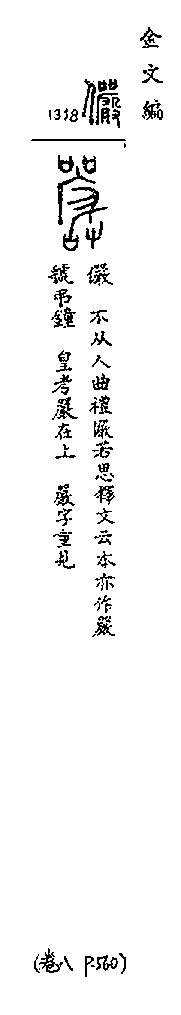 金文編
儼 1318
儼 不从人曲禮儼若思釋文云本亦作嚴
號弔鐘 皇考嚴在上 嚴字重見
(卷八 P.560)